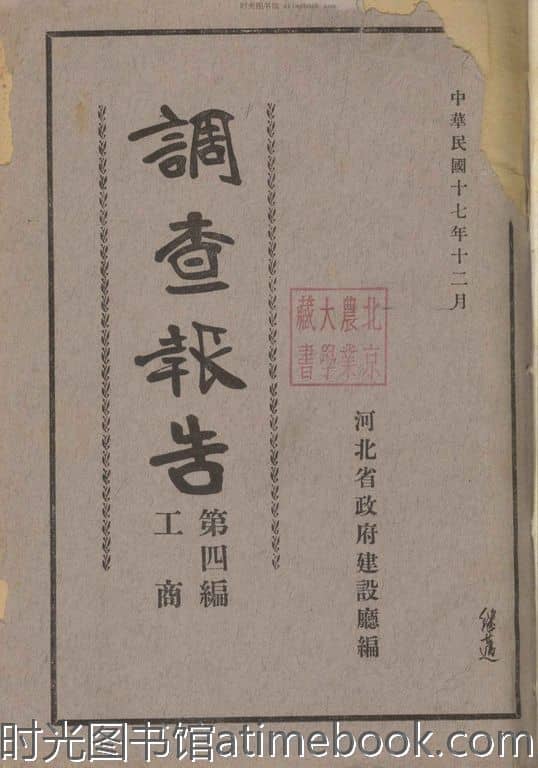 时光图书馆 atimebook.com
中華民國十七年十二月
北京
農業
大學
藏書
河北省政府建設廳編
調查報告
第四編
工商
时光图书馆atimebook.com